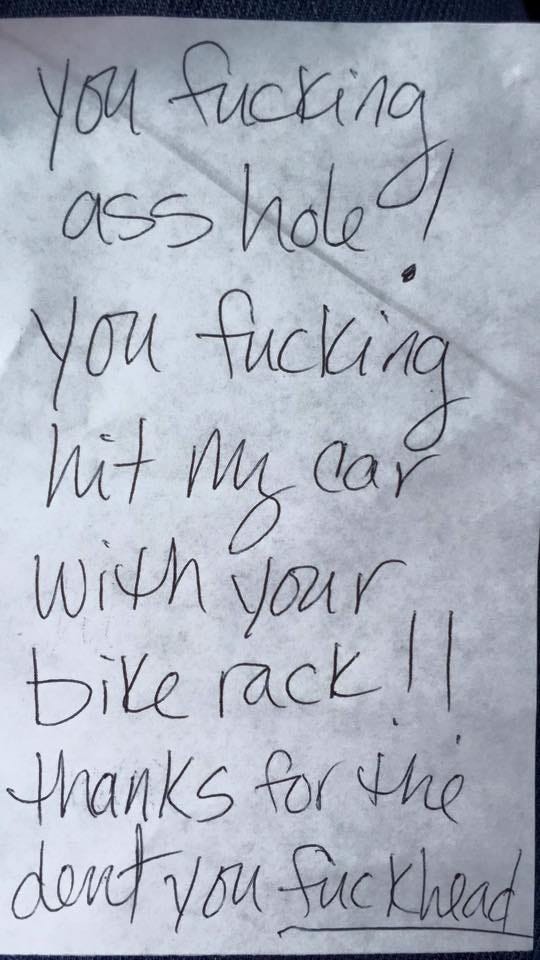 you fucking
ass hole!
you fucking
hit my car
with your
bike rack!!
thanks for the
dent you fuckhead